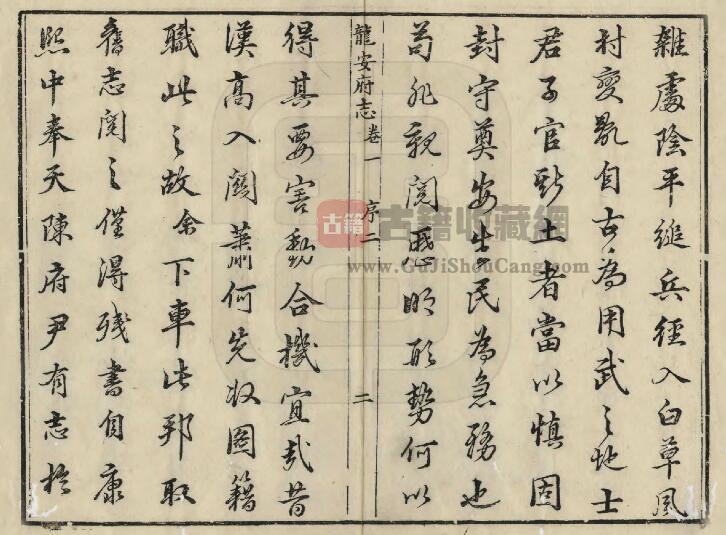 雜處陰平縋兵徑入白草風
村變亂自古為用武之地士
君子官斯土者當以慎固
封守奠安生民為急務也
苟非親閱歷明形勢何以
龍安府志 卷一 序二 二
得其要害動合機宜哉昔
漢高入關蕭何先收圖籍
職此之故余下車此邦取
舊志閱之僅得殘書自康
熙中奉天陳府尹有志於
古籍 古籍收藏網
www.GuJiShouCang.com